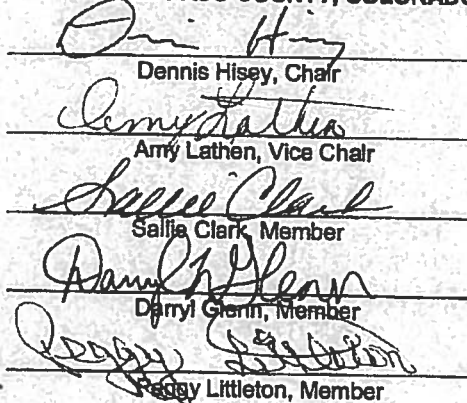 COUNTY, COLORADO
Dennis Hisey
Dennis Hisey, Chair
Amy Lathen
Amy Lathen, Vice Chair
Sallie Clark
Sallie Clark, Member
Darryl Glenn
Darryl Glenn, Member
Peggy Littleton
Peggy Littleton, Member